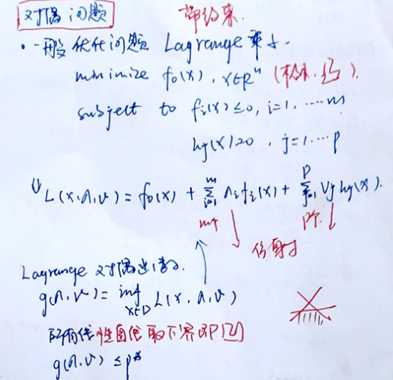 对偶问题 带约束.
· 一般优化问题 Lagrange 乘子.
minimize f₀(x), x∈Rⁿ (标准.凸).
subject to fᵢ(x)≤0, i=1, ····m
hⱼ(x)=0, j=1···· p
L(x,λ,υ) = f₀(x) + Σᵢ₌₁ᵐ λᵢfᵢ(x) + Σⱼ₌₁ᵖ υⱼhⱼ(x).
m个 p个.
仿射
Lagrange 对偶函数.
g(λ,υ) = inf x∈D L(x,λ,υ)
取下界 即凹
g(λ,υ) ≤p*